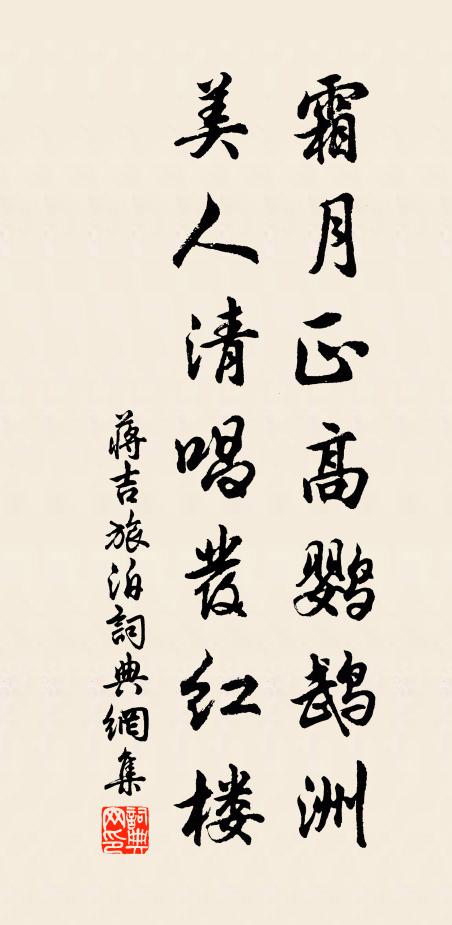 霜月正高鹦鹉洲
美人清唱发红楼
蒋吉旅泊词典网集
词典网印